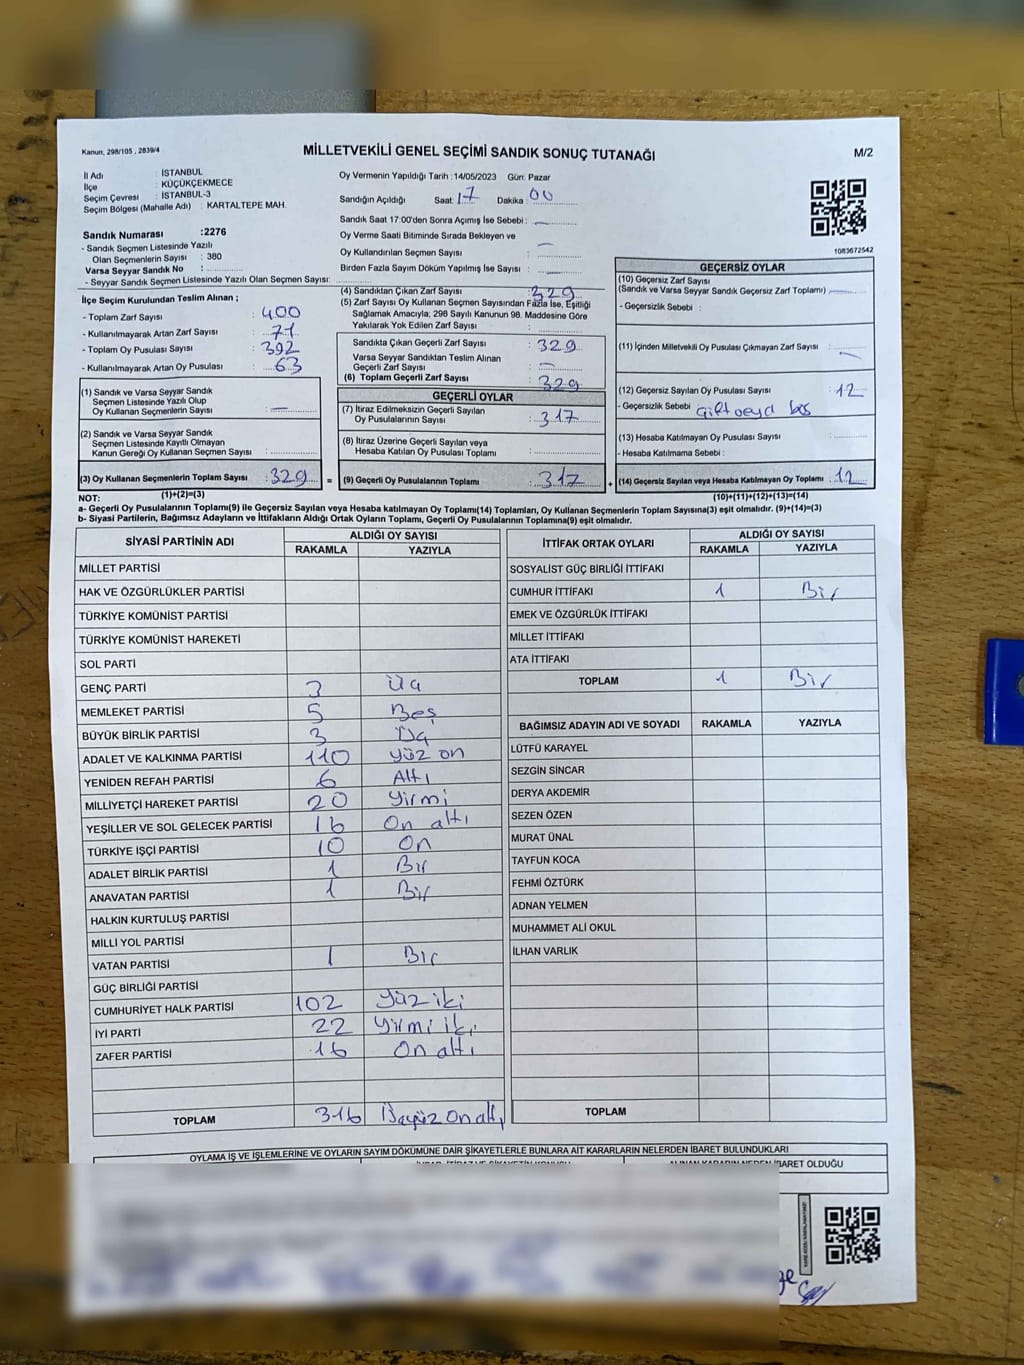 Kanun, 298/105 , 2839/4
MİLLETVEKİLİ GENEL SEÇİMİ SANDIK SONUÇ TUTANAĞI
M/2
İl Adı : İSTANBUL
İlçe : KÜÇÜKÇEKMECE
Seçim Çevresi : İSTANBUL-3
Seçim Bölgesi (Mahalle Adı) : KARTALTEPE MAH.
Sandık Numarası :2276
- Sandık Seçmen Listesinde Yazılı
Olan Seçmenlerin Sayısı : 380
Varsa Seyyar Sandık No :
- Seyyar Sandık Seçmen Listesinde Yazılı Olan Seçmen Sayısı:
Oy Vermenin Yapıldığı Tarih :14/05/2023 Gün: Pazar
Sandığın Açıldığı Saat: 17 Dakika : 00
Sandık Saat 17:00'den Sonra Açımış İse Sebebi : —
Oy Verme Saati Bitiminde Sırada Bekleyen ve
Oy Kullandırılan Seçmen Sayısı : —
Birden Fazla Sayım Döküm Yapılmış İse Sayısı : —
1083672542
İlçe Seçim Kurulundan Teslim Alınan ;
- Toplam Zarf Sayısı : 400
- Kullanılmayarak Artan Zarf Sayısı : 71
- Toplam Oy Pusulası Sayısı : 392
- Kullanılmayarak Artan Oy Pusulası : 63
(1) Sandık ve Varsa Seyyar Sandık
Seçmen Listesinde Yazılı Olup
Oy Kullanan Seçmenlerin Sayısı : —
(2) Sandık ve Varsa Seyyar Sandık
Seçmen Listesinde Kayıtlı Olmayan
Kanun Gereği Oy Kullanan Seçmen Sayısı :
(3) Oy Kullanan Seçmenlerin Toplam Sayısı : 329
(1)+(2)=(3)
(4) Sandıktan Çıkan Zarf Sayısı : 329
(5) Zarf Sayısı Oy Kullanan Seçmen Sayısından Fazla İse, Eşitliği
Sağlamak Amacıyla; 298 Sayılı Kanunun 98. Maddesine Göre
Yakılarak Yok Edilen Zarf Sayısı :
Sandıkta Çıkan Geçerli Zarf Sayısı : 329
Varsa Seyyar Sandıktan Teslim Alınan
Geçerli Zarf Sayısı : —
(6) Toplam Geçerli Zarf Sayısı : 329
GEÇERLİ OYLAR
(7) İtiraz Edilmeksizin Geçerli Sayılan
Oy Pusulalarının Sayısı : 317
(8) İtiraz Üzerine Geçerli Sayılan veya
Hesaba Katılan Oy Pusulası Toplamı :
= (9) Geçerli Oy Pusulalarının Toplamı : 317 +
GEÇERSİZ OYLAR
(10) Geçersiz Zarf Sayısı
(Sandık ve Varsa Seyyar Sandık Geçersiz Zarf Toplamı) : —
- Geçersizlik Sebebi :
(11) İçinden Milletvekili Oy Pusulası Çıkmayan Zarf Sayısı : —
(12) Geçersiz Sayılan Oy Pusulası Sayısı : 12
- Geçersizlik Sebebi : Çift veya boş
(13) Hesaba Katılmayan Oy Pusulası Sayısı :
- Hesaba Katılmama Sebebi :
(14) Geçersiz Sayılan veya Hesaba Katılmayan Oy Toplamı : 12
(10)+(11)+(12)+(13)=(14)
NOT:
a- Geçerli Oy Pusulalarının Toplamı(9) ile Geçersiz Sayılan veya Hesaba katılmayan Oy Toplamı(14) Toplamları, Oy Kullanan Seçmenlerin Toplam Sayısına(3) eşit olmalıdır. (9)+(14)=(3)
b- Siyasi Partilerin, Bağımsız Adayların ve İttifakların Aldığı Ortak Oyların Toplamı, Geçerli Oy Pusulalarının Toplamına(9) eşit olmalıdır.
SİYASİ PARTİNİN ADI ALDIĞI OY SAYISI
RAKAMLA YAZIYLA
MİLLET PARTİSİ
HAK VE ÖZGÜRLÜKLER PARTİSİ
TÜRKİYE KOMÜNİST PARTİSİ
TÜRKİYE KOMÜNİST HAREKETİ
SOL PARTİ
GENÇ PARTİ 3 Üç
MEMLEKET PARTİSİ 5 Beş
BÜYÜK BİRLİK PARTİSİ 3 Üç
ADALET VE KALKINMA PARTİSİ 110 yüz on
YENİDEN REFAH PARTİSİ 6 Altı
MİLLİYETÇİ HAREKET PARTİSİ 20 Yirmi
YEŞİLLER VE SOL GELECEK PARTİSİ 16 On altı
TÜRKİYE İŞÇİ PARTİSİ 10 On
ADALET BİRLİK PARTİSİ 1 Bir
ANAVATAN PARTİSİ 1 Bir
HALKIN KURTULUŞ PARTİSİ
MİLLİ YOL PARTİSİ
VATAN PARTİSİ 1 Bir
GÜÇ BİRLİĞİ PARTİSİ
CUMHURİYET HALK PARTİSİ 102 Yüz iki
İYİ PARTİ 22 Yirmi iki
ZAFER PARTİSİ 16 On altı
TOPLAM 316 Üçyüz on altı
İTTİFAK ORTAK OYLARI ALDIĞI OY SAYISI
RAKAMLA YAZIYLA
SOSYALİST GÜÇ BİRLİĞİ İTTİFAKI
CUMHUR İTTİFAKI 1 Bir
EMEK VE ÖZGÜRLÜK İTTİFAKI
MİLLET İTTİFAKI
ATA İTTİFAKI
TOPLAM 1 Bir
BAĞIMSIZ ADAYIN ADI VE SOYADI RAKAMLA YAZIYLA
LÜTFÜ KARAYEL
SEZGİN SİNCAR
DERYA AKDEMİR
SEZEN ÖZEN
MURAT ÜNAL
TAYFUN KOCA
FEHMİ ÖZTÜRK
ADNAN YELMEN
MUHAMMET ALİ OKUL
İLHAN VARLIK
TOPLAM
OYLAMA İŞ VE İŞLEMLERİNE VE OYLARIN SAYIM DÖKÜMÜNE DAİR ŞİKAYETLERLE BUNLARA AİT KARARLARIN NELERDEN İBARET BULUNDUKLARI
İBARET OLDUĞU